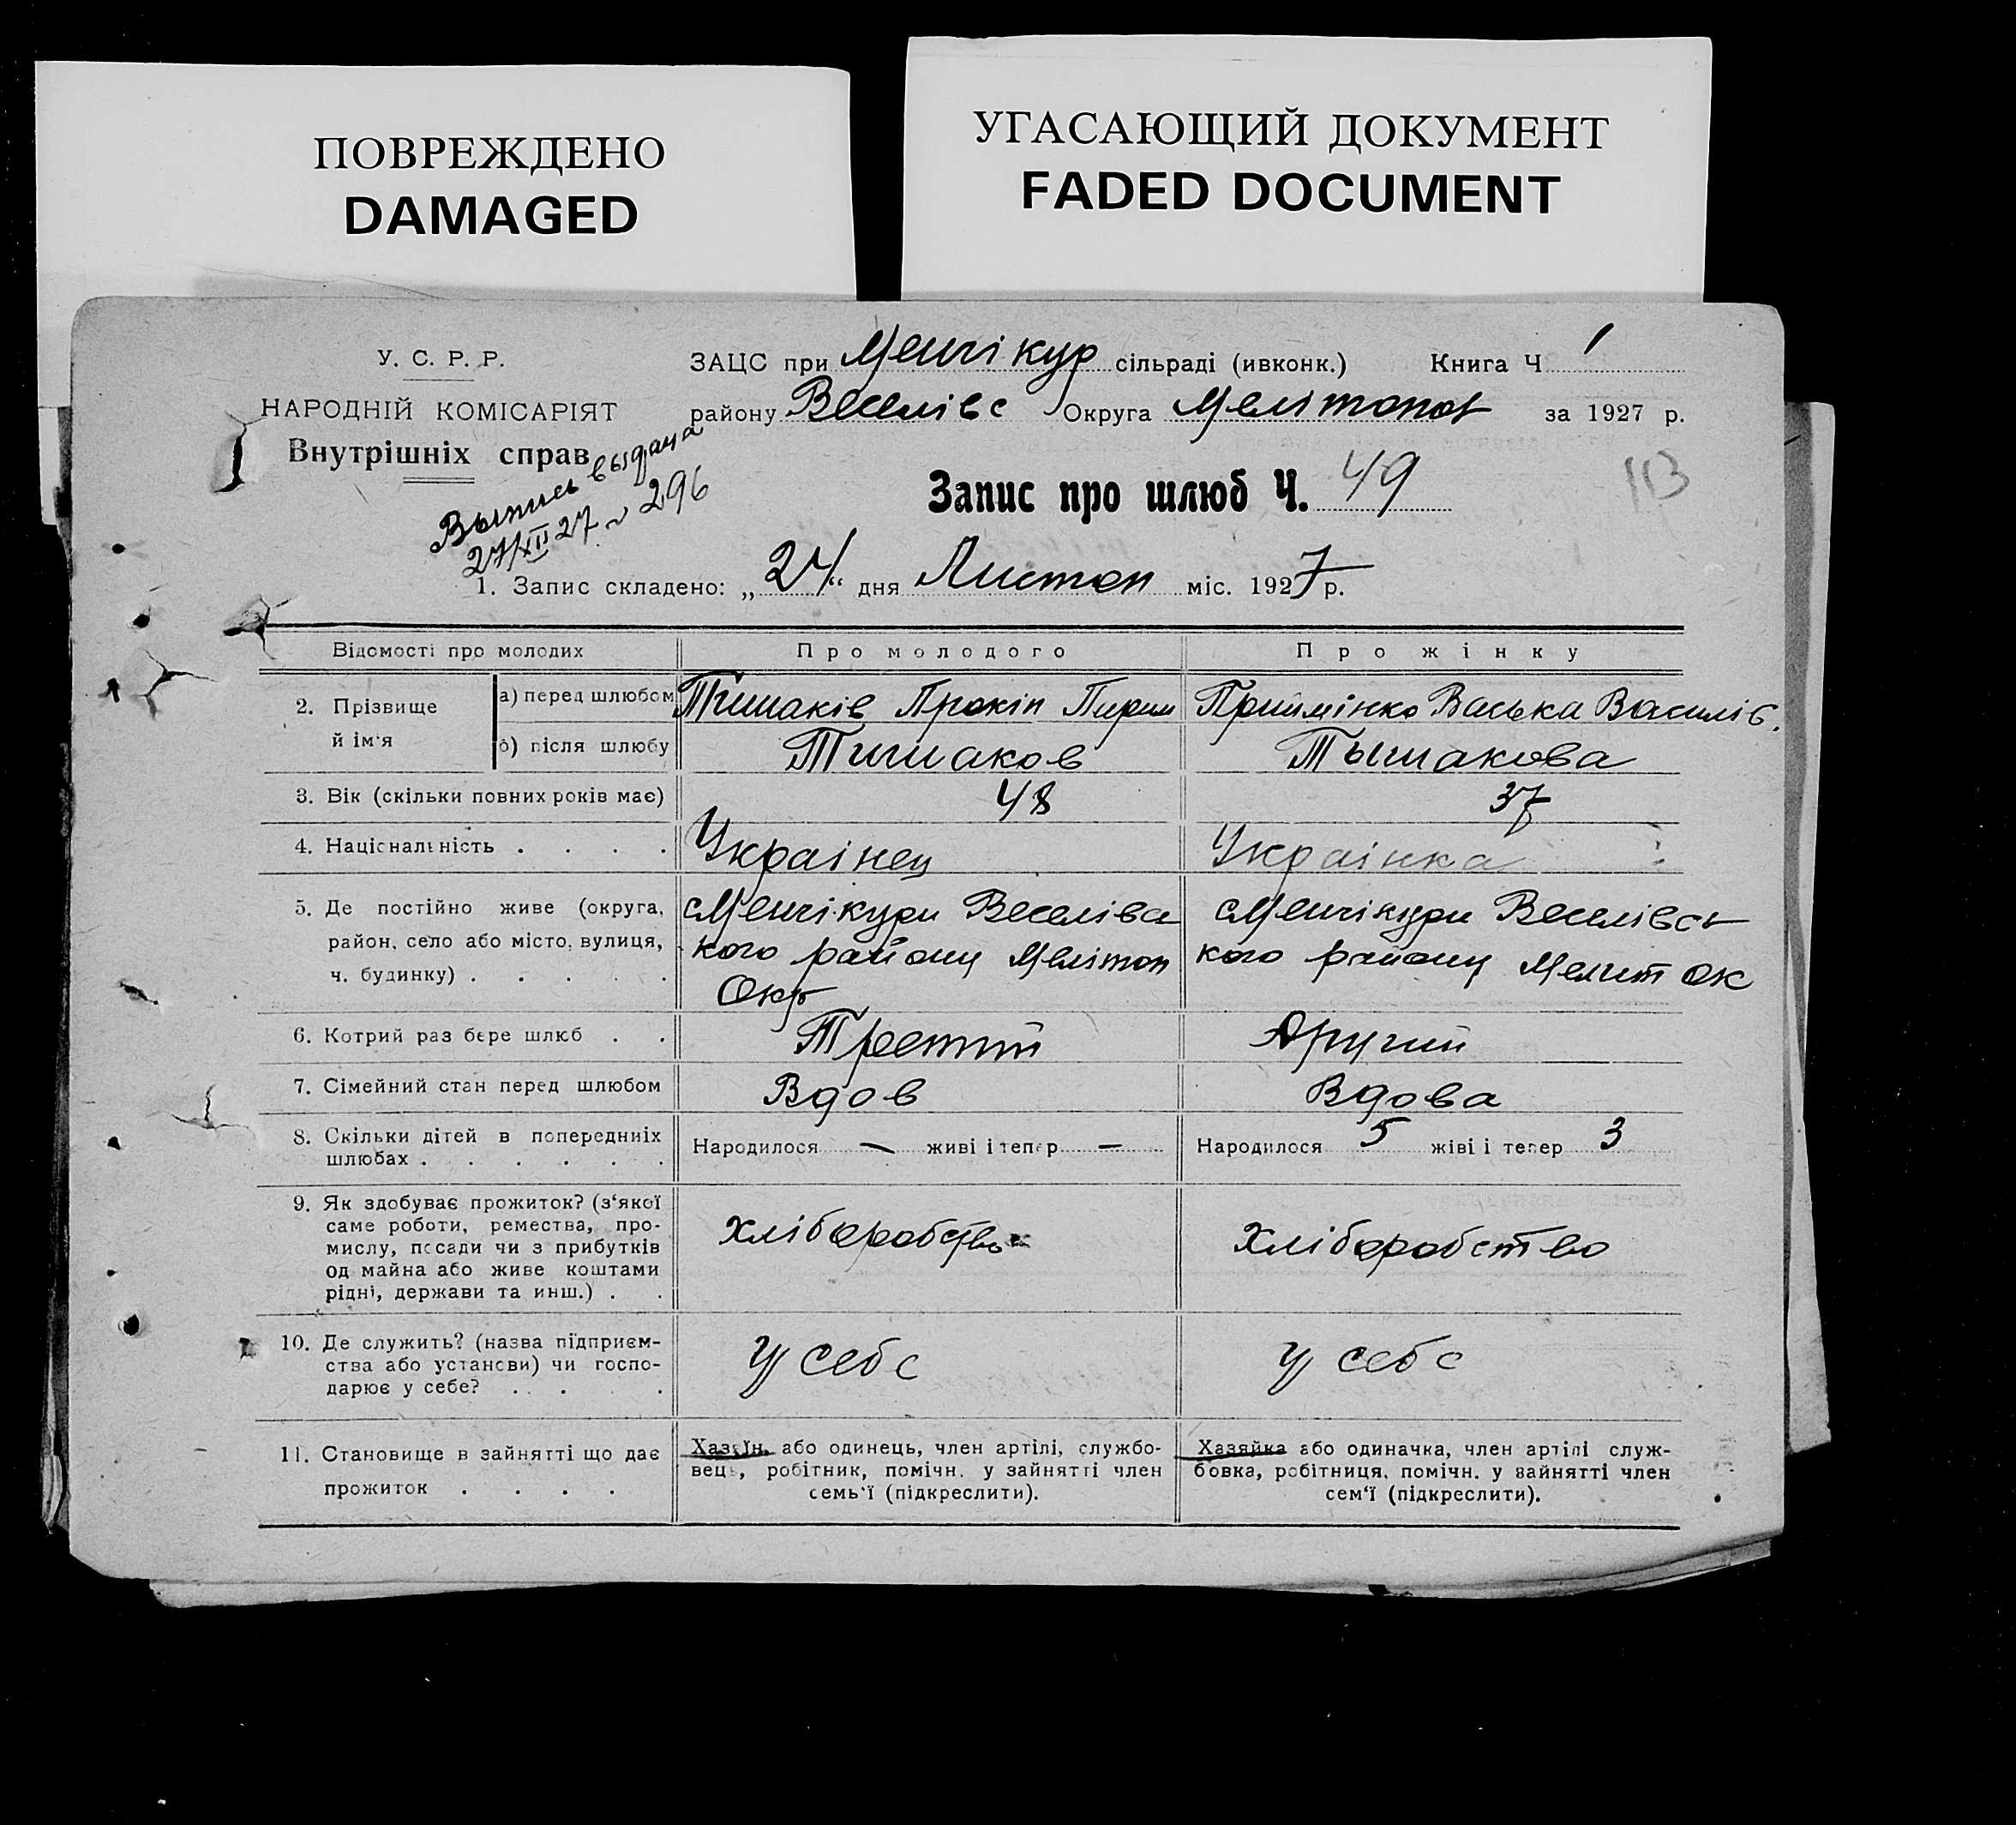 ПОВРЕЖДЕНО
DAMAGED
УГАСАЮЩИЙ ДОКУМЕНТ
FADED DOCUMENT
У. С. Р. Р.
НАРОДНІЙ КОМІСАРІЯТ
Внутрішніх справ
Выпись выдана
27/XII 27 N 296
ЗАЦС при Менчікур сільраді (ивконк.) Книга Ч 1
району Веселівс Округа Мелітопол за 1927 р.
Запис про шлюб Ч. 49
113
1. Запис складено: „24“ дня Листоп міс. 1927 р.
Відомості про молодих Про молодого Про жінку
2. Прізвище й ім'я а) перед шлюбом Тишаків Прокіп Пирим Приймінко Васька Василів.
б) після шлюбу Тишаков Тышакова
3. Вік (скільки повних років має) 48 37
4. Національність . . . . Українец Українка
5. Де постійно живе (округа, Менчікури Веселівс Менчікури Веселівсь
район, село або місто, вулиця, кого району Мелітоп кого району Мелит Ок
ч. будинку) . . . . . Окр
6. Котрий раз бере шлюб . . Третій Другий
7. Сімейний стан перед шлюбом Вдов Вдова
8. Скільки дітей в попередніх Народилося — живі і тепер — Народилося 5 жіві і тепер 3
шлюбах . . . . . .
9. Як здобуває прожиток? (з'якої
саме роботи, ремества, про-
мислу, посади чи з прибутків Хліборобство Хліборобство
од майна або живе коштами
рідні, держави та инш.) . .
10. Де служить? (назва підприєм-
ства або установи) чи госпо- У себе У себе
дарює у себе? . . . .
11. Становище в зайнятті що дає Хазяїн або одинець, член артілі, службо- Хазяйка або одиначка, член артілі служ-
прожиток . . . . вець, робітник, помічн. у зайнятті член бовка, робітниця, помічн. у зайнятті член
семь'ї (підкреслити). сем'ї (підкреслити).